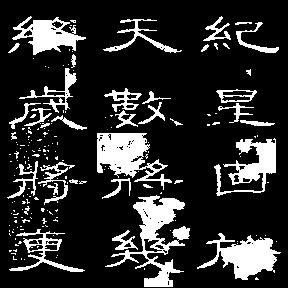 紀星回於
天數將幾
終歲將更